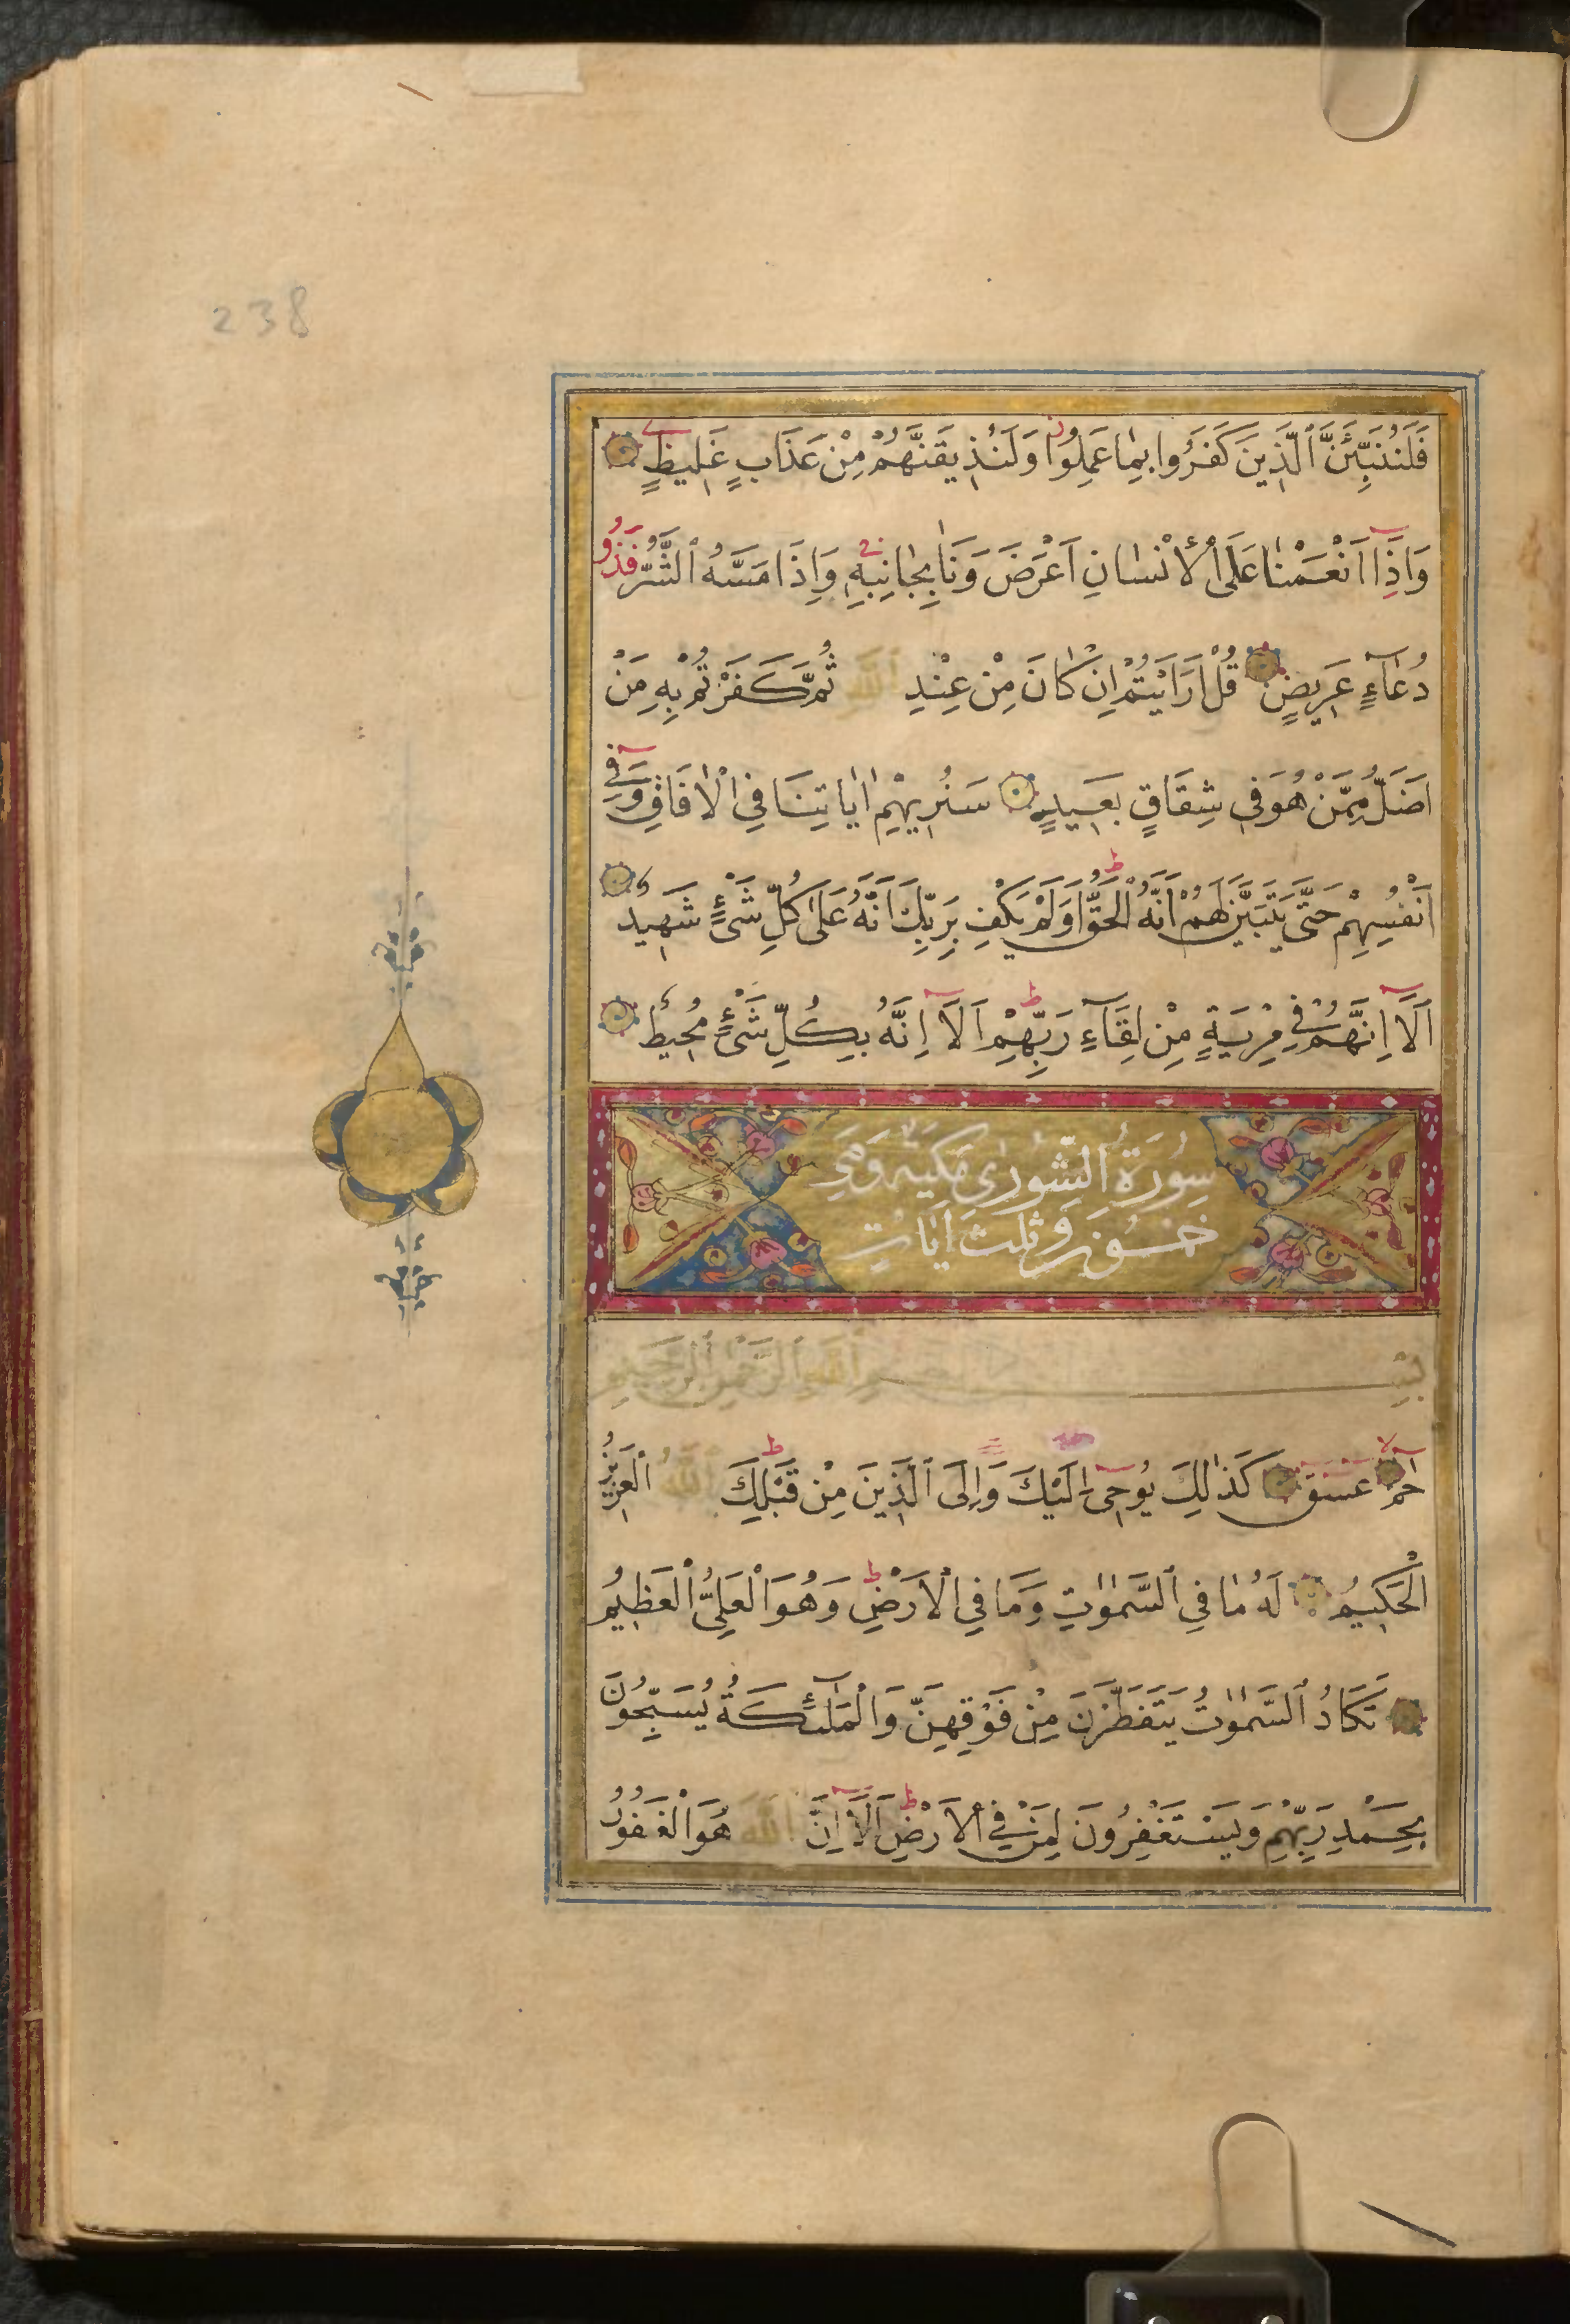 238
فَلَنُنَبِّئَنَّ ٱلَّذِينَ كَفَرُوا بِمَا عَمِلُوا وَلَنُذِيقَنَّهُمْ مِنْ عَذَابٍ غَلِيظٍ
وَاِذَا اَنْعَمْنَا عَلَى ٱلْاِنْسَانِ اَعْرَضَ وَنَاٰ بِجَانِبِهِ وَاِذَا مَسَّهُ ٱلشَّرُّ فَذُو
دُعَاۤءٍ عَرِيضٍ قُلْ اَرَاَيْتُمْ اِنْ كَانَ مِنْ عِنْدِ ٱللّٰهِ ثُمَّ كَفَرْتُمْ بِهِ مَنْ
اَضَلُّ مِمَّنْ هُوَ فِي شِقَاقٍ بَعِيدٍ سَنُرِيهِمْ اٰيَاتِنَا فِي ٱلْاٰفَاقِ وَفِي
اَنْفُسِهِمْ حَتَّى يَتَبَيَّنَ لَهُمْ اَنَّهُ ٱلْحَقُّ اَوَلَمْ يَكْفِ بِرَبِّكَ اَنَّهُ عَلَى كُلِّ شَيْءٍ شَهِيدٌ
اَلَاۤ اِنَّهُمْ فِي مِرْيَةٍ مِنْ لِقَاۤءِ رَبِّهِمْ اَلَاۤ اِنَّهُ بِكُلِّ شَيْءٍ مُحِيطٌ
سُورَةُ ٱلشُّورٰى مَكِّيَّة وَهِيَ
خمسُونَ وَثلٰث اٰيَاتٍ
بِسْمِ ٱللّٰهِ ٱلرَّحْمٰنِ ٱلرَّحِيمِ
حٰمۤ عۤسۤقۤ كَذٰلِكَ يُوحِىۤ اِلَيْكَ وَاِلَى ٱلَّذِينَ مِنْ قَبْلِكَ ٱللّٰهُ ٱلْعَزِيزُ
ٱلْحَكِيمُ لَهُ مَا فِي ٱلسَّمٰوٰتِ وَمَا فِي ٱلْاَرْضِ وَهُوَ ٱلْعَلِيُّ ٱلْعَظِيمُ
تَكَادُ ٱلسَّمٰوٰتُ يَتَفَطَّرْنَ مِنْ فَوْقِهِنَّ وَٱلْمَلٰۤئِكَةُ يُسَبِّحُونَ
بِحَمْدِ رَبِّهِمْ وَيَسْتَغْفِرُونَ لِمَنْ فِي ٱلْاَرْضِ اَلَاۤ اِنَّ ٱللّٰهَ هُوَ ٱلْغَفُورُ